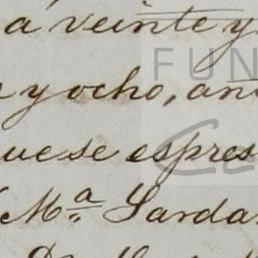 a veinte y
y ocho, an
FUN
que se espres
Mª Sarda